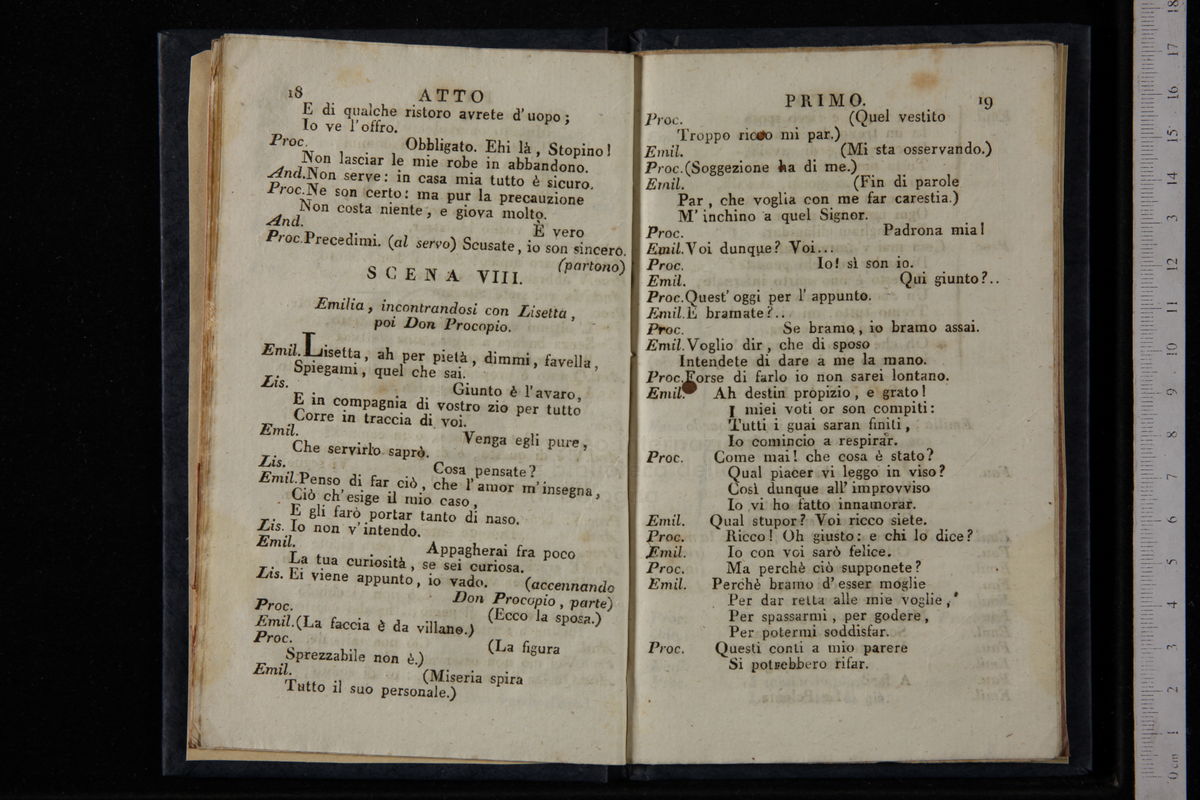 18 ATTO
E di qualche ristoro avrete d'uopo;
Io ve l'offro.
Proc. Obbligato. Ehi là, Stopino!
Non lasciar le mie robe in abbandono.
And. Non serve: in casa mia tutto è sicuro.
Proc. Ne son certo: ma pur la precauzione
Non costa niente, e giova molto.
And. È vero
Proc. Precedimi. (al servo) Scusate, io son sincero.
(partono)
SCENA VIII.
Emilia, incontrandosi con Lisetta,
poi Don Procopio.
Emil. Lisetta, ah per pietà, dimmi, favella,
Spiegami, quel che sai.
Lis. Giunto è l'avaro,
E in compagnia di vostro zio per tutto
Corre in traccia di voi.
Emil. Venga egli pure,
Che servirlo saprò.
Lis. Cosa pensate?
Emil. Penso di far ciò, che l'amor m'insegna,
Ciò ch'esige il mio caso,
E gli farò portar tanto di naso.
Lis. Io non v'intendo.
Emil. Appagherai fra poco
La tua curiosità, se sei curiosa.
Lis. Ei viene appunto, io vado. (accennando
Don Procopio, parte)
Proc. (Ecco la sposa.)
Emil. (La faccia è da villano.)
Proc. (La figura
Sprezzabile non è.)
Emil. (Miseria spira
Tutto il suo personale.)
PRIMO. 19
Proc. (Quel vestito
Troppo ricco mi par.)
Emil. (Mi sta osservando.)
Proc. (Soggezione ha di me.)
Emil. (Fin di parole
Par, che voglia con me far carestia.)
M'inchino a quel Signor.
Proc. Padrona mia!
Emil. Voi dunque? Voi...
Proc. Io! sì son io.
Emil. Qui giunto?..
Proc. Quest' oggi per l' appunto.
Emil. E bramate?..
Proc. Se bramo, io bramo assai.
Emil. Voglio dir, che di sposo
Intendete di dare a me la mano.
Proc. Forse di farlo io non sarei lontano.
Emil. Ah destin propizio, e grato!
I miei voti or son compiti:
Tutti i guai saran finiti,
Io comincio a respirar.
Proc. Come mai! che cosa è stato?
Qual piacer vi leggo in viso?
Così dunque all' improvviso
Io vi ho fatto innamorar.
Emil. Qual stupor? Voi ricco siete.
Proc. Ricco! Oh giusto: e chi lo dice?
Emil. Io con voi sarò felice.
Proc. Ma perchè ciò supponete?
Emil. Perchè bramo d' esser moglie
Per dar retta alle mie voglie,
Per spassarmi, per godere,
Per potermi soddisfar.
Proc. Questi conti a mio parere
Si potrebbero rifar.
0 cm 1 2 3 4 5 6 7 8 9 10 11 12 13 14 15 16 17 18